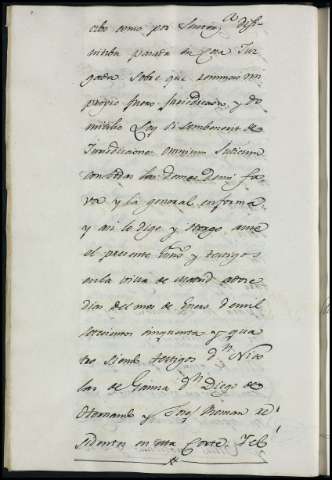 cibo como por Senten.ª difi-
nitiba pasada en Cosa Juz-
gada Sobre que renuncio mi
propio fuero Jurisdiccion y do-
micilio Ley Si Combenerit de
Jurisdicione omnium Judicum
con todas las demas de mi fa-
vor y la general en forma
y asi lo digo y otorgo ante
el presente Essno y testigos
en la villa de Madrid a doze
dias del mes de Enero de mil
setecientos cinquenta y qua-
tro siendo testigos dn. Nico-
las de dn. Diego de
y Joseph Roman re-
sidentes en esta Corte. Y el